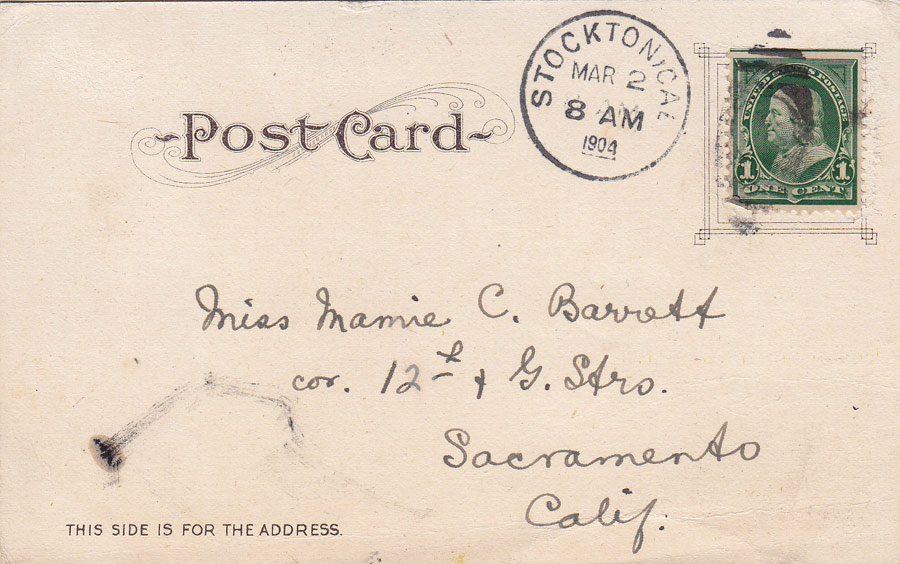 Post Card
STOCKTON, CAL
MAR 2
8 AM
1904
UNITED STATES POSTAGE
1 1
ONE CENT
Miss Mamie C. Barrett
cor. 12th & G. Strs.
Sacramento
Calif.
THIS SIDE IS FOR THE ADDRESS.